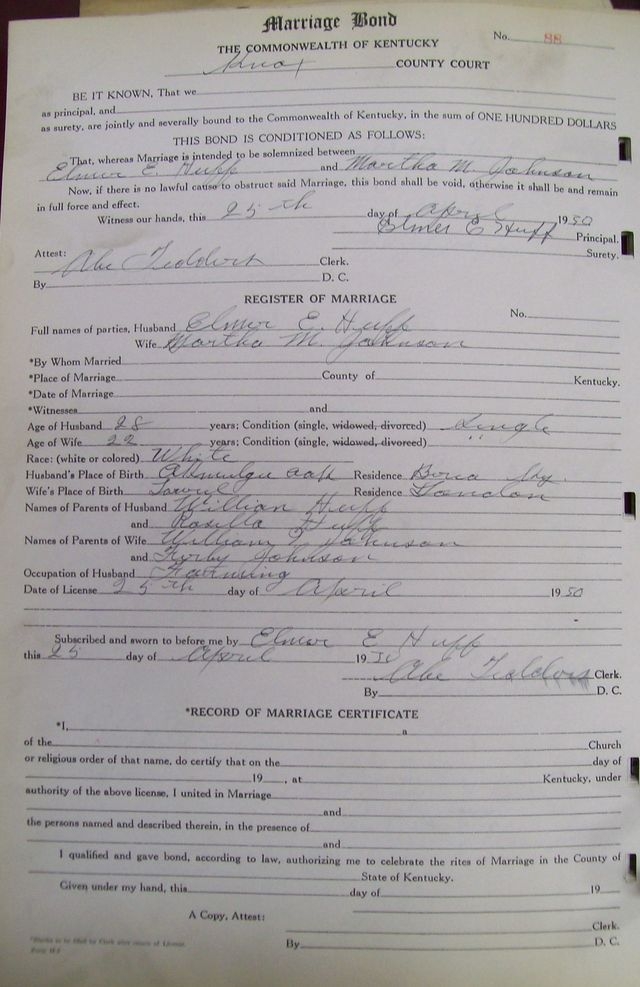 Marriage Bond
No. 88
THE COMMONWEALTH OF KENTUCKY
Knox COUNTY COURT
BE IT KNOWN, That we
as principal, and
as surety, are jointly and severally bound to the Commonwealth of Kentucky, in the sum of ONE HUNDRED DOLLARS
THIS BOND IS CONDITIONED AS FOLLOWS:
That, whereas Marriage is intended to be solemnized between
Elmer E. Huff and Martha M. Johnson
Now, if there is no lawful cause to obstruct said Marriage, this bond shall be void, otherwise it shall be and remain
in full force and effect.
Witness our hands, this 25th day of April 1950
Elmer E Huff Principal.
Surety.
Attest:
Abe Clerk.
By D. C.
REGISTER OF MARRIAGE
No.
Full names of parties, Husband Elmer E. Huff
Wife Martha M. Johnson
*By Whom Married
*Place of Marriage County of Kentucky.
*Date of Marriage
*Witnesses and
Age of Husband 28 years; Condition (single, widowed, divorced) Single
Age of Wife 22 years; Condition (single, widowed, divorced) "
Race: (white or colored) White
Husband's Place of Birth Residence
Wife's Place of Birth Residence London
Names of Parents of Husband William Huff
and Huff
Names of Parents of Wife William Johnson
and Johnson
Occupation of Husband Farming
Date of License 25th day of April 1950
Subscribed and sworn to before me by Elmer E Huff
this 25 day of April 1950
Abe Clerk.
By D. C.
*RECORD OF MARRIAGE CERTIFICATE
*I, a
of the Church
or religious order of that name, do certify that on the day of
19 , at Kentucky, under
authority of the above license, I united in Marriage
and
the persons named and described therein, in the presence of
and
I qualified and gave bond, according to law, authorizing me to celebrate the rites of Marriage in the County of
State of Kentucky.
Given under my hand, this day of 19
A Copy, Attest:
Clerk.
By D. C.